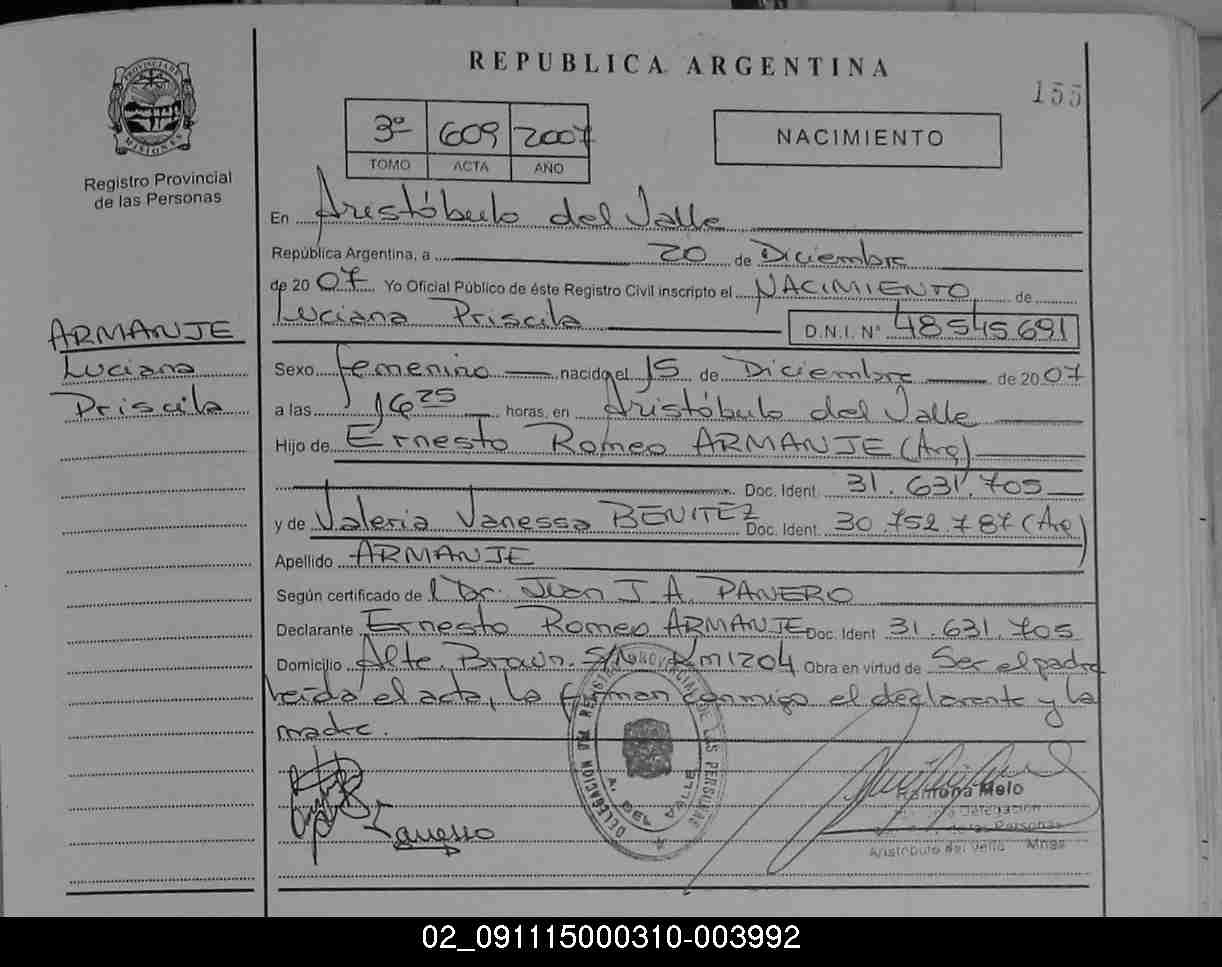 REPUBLICA ARGENTINA
155
PROVINCIA DE MISIONES
Registro Provincial
de las Personas
3º 609 2007
TOMO ACTA AÑO
NACIMIENTO
En Aristóbulo del Valle
República Argentina, a 20 de Diciembre
de 20 07 Yo Oficial Público de éste Registro Civil inscripto el NACIMIENTO de
Luciana Priscila D.N.I. Nº 48545691
ARMANJE
Luciana
Priscila
Sexo femenino nacido el 15 de Diciembre de 20 07
a las 16 25 horas, en Aristóbulo del Valle
Hijo de Ernesto Romeo ARMANJE (Arg)
Doc. Ident. 31.631.705
y de Valeria Vanessa BENITEZ Doc. Ident. 30.752.787 (Arg)
Apellido ARMANJE
Según certificado de l Dr. Juan J A. PANERO
Declarante Ernesto Romeo ARMANJE Doc. Ident 31.631.705
Domicilio Alte. Brown. S/N Km 1204 Obra en virtud de Ser el padre
leida el acta, la firman conmigo el declarante y la
madre.
DELEGACION REGISTRO PROVINCIAL DE LAS PERSONAS
A. DEL VALLE
Ramona Melo
Delegación
de las Personas
Aristobulo del Valle Mnes
02_091115000310-003992